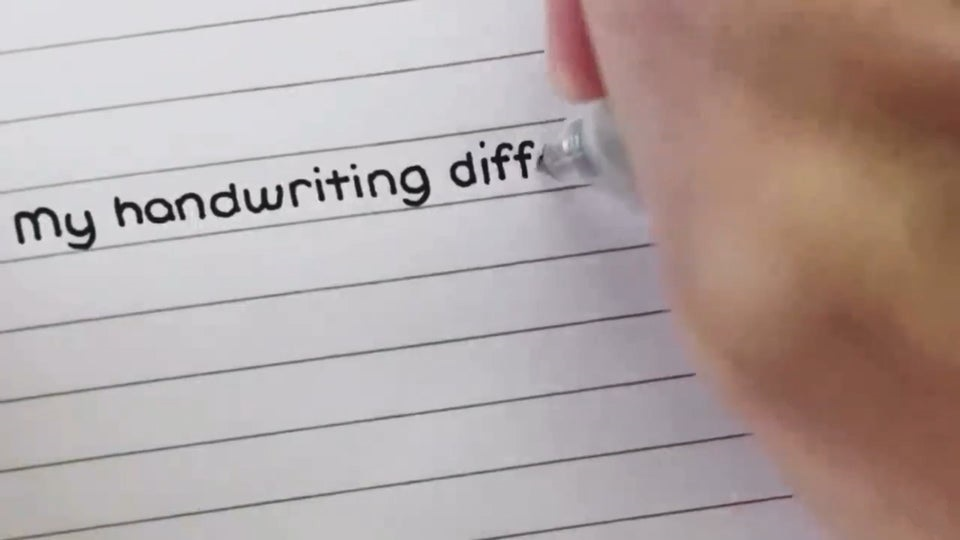 My handwriting diff